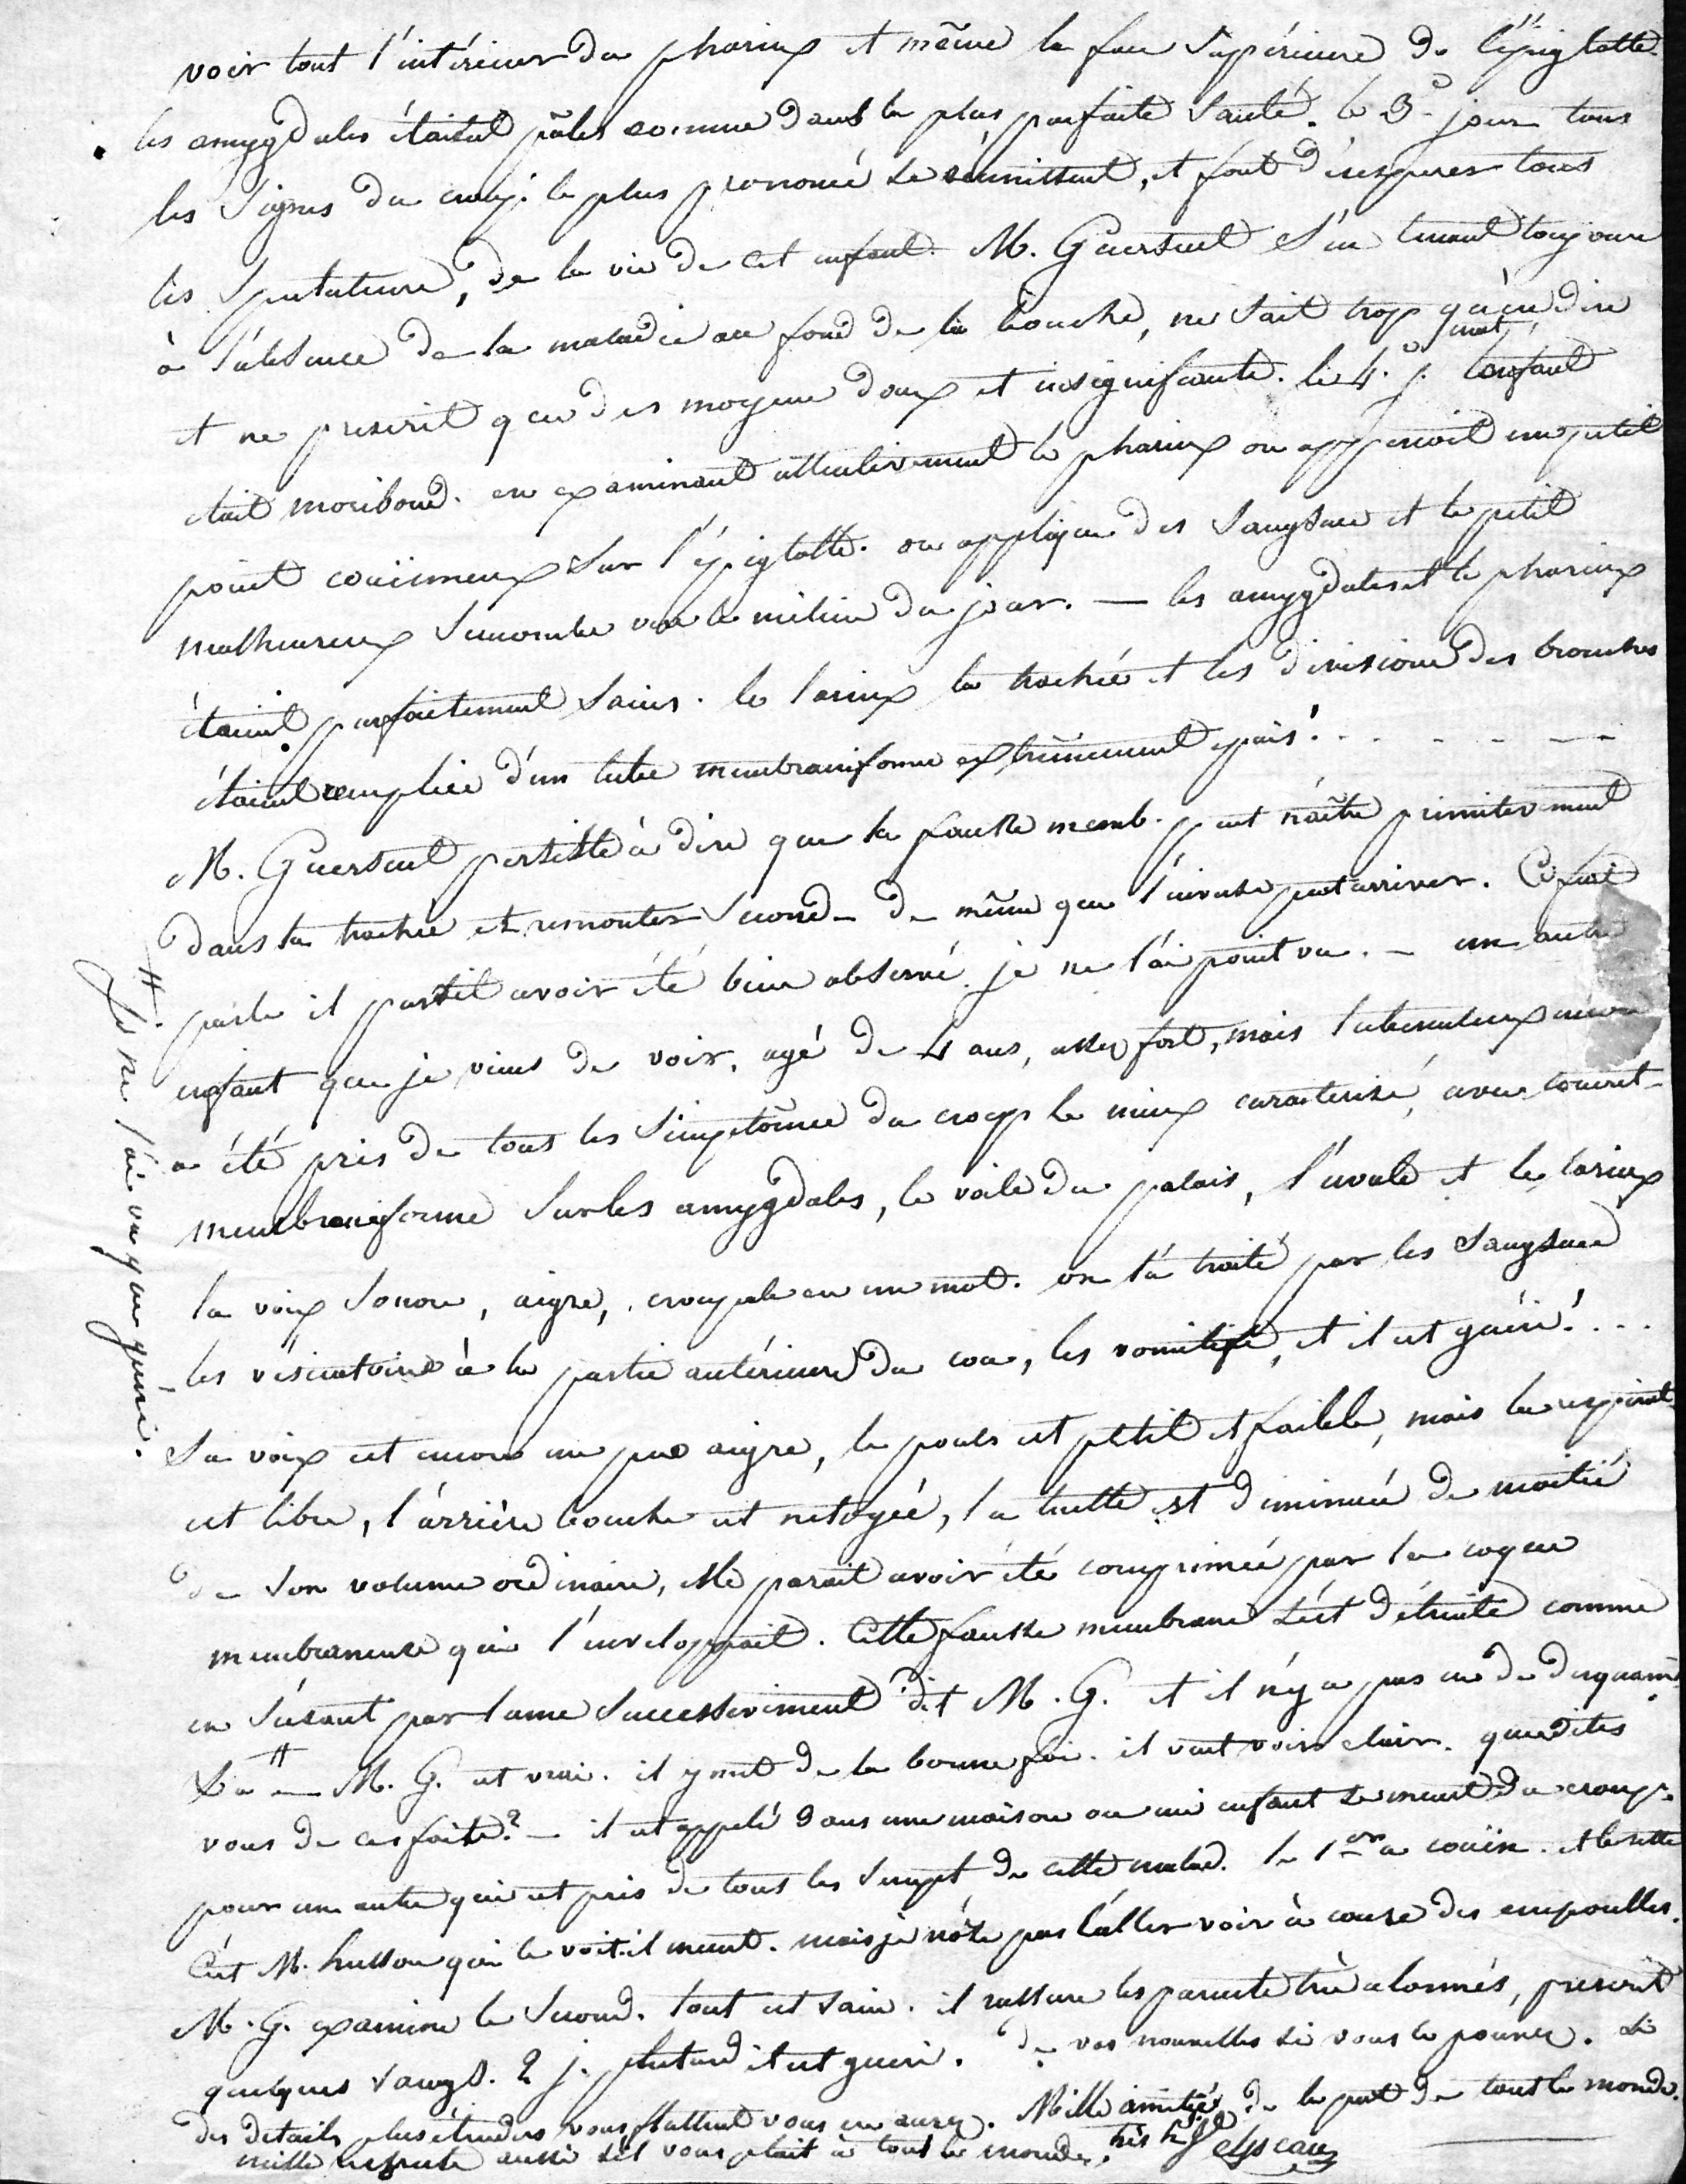 voir tout l'intérieur du pharinx et même la face supérieure de l'épiglotte
les amygdales étaient pâles comme dans la plus parfaite santé. le 3e jour tous
les signes du croup le plus prononcé se réunissent, et font désespérer tous
les spectateurs, de la vie de cet enfant. M. Guersent s'en tenant toujours
à l'absence de la maladie au fond de la bouche, ne sait trop qu'en dire
et ne prescrit que des moyens doux et insignifiants. le 4e j. mat. l'enfant
était moribond. en examinant attentivement le pharinx on apperçoit un petit
point couënneux sur l'épiglotte. on applique des sangsues et le petit
malheureux succombe vers le milieu du jour. — les amygdales et le pharinx
étaient parfaitement sains. le larinx la trachée et les divisions des bronches
étaient remplies d'un tube membraniforme extrêmement épais! . . - - - - -
M. Guersent persiste à dire que la fausse memb. peut naître primitivement
dans la trachée et remonter second. de même que l'inverse peut arriver. Ce fait
parle il parait avoir été bien observé je ne l'ai point vu. — un autre
enfant que je viens de voir, agé de 4 ans, assez fort, mais tuberculeux
a été pris de tous les simptômes du croup le mieux caractérisé, avec concret.
membraniforme sur les amygdales, le voile du palais, l'uvule et le larinx
la voix sonore, aigre, croupale en un mot. on l'a traité par les sangsues
les vésicatoires à la partie antérieure du cou, les vomitifs, et il est guéri! . . .
Sa voix est encore un peu aigre, le pouls est petit et faible, mais la respirat.
est libre, l'arrière bouche est netoyée, la luette est diminuée de moitié
de son volume ordinaire, elle parait avoir été comprimée par la coque
membraneuse qui l'enveloppait. Cette fausse membrane s'est détruite comme
en s'usant par lame successivement dit M. G. et il n'y a pas eu de desquam.
# — M. G. est vrai. il y met de la bonne foi. il veut voir clair. que dites
vous de ces faits? — il est appelé dans une maison ou un enfant se meurt du croup.
pour un autre qui est pris de tous les simpt. de cette malad. le 1er a couën. et luette
C'est M. husson qui le voit. il meurt. mais je n'ose pas l'aller voir à cause des empoulles.
M. G. examine le second. tout est sain. il rassure les parents très alarmés, prescrit
quelques sangs. 2 j. plutard il est guéri. de vos nouvelles si vous le pouvez. si
des détails plus étendus vous flattent vous en aurez. Mille amitiés de la part de tout le monde.
mille respects aussi s'il vous plait à tout le monde.
# Je ne l'ai vu que guéri.